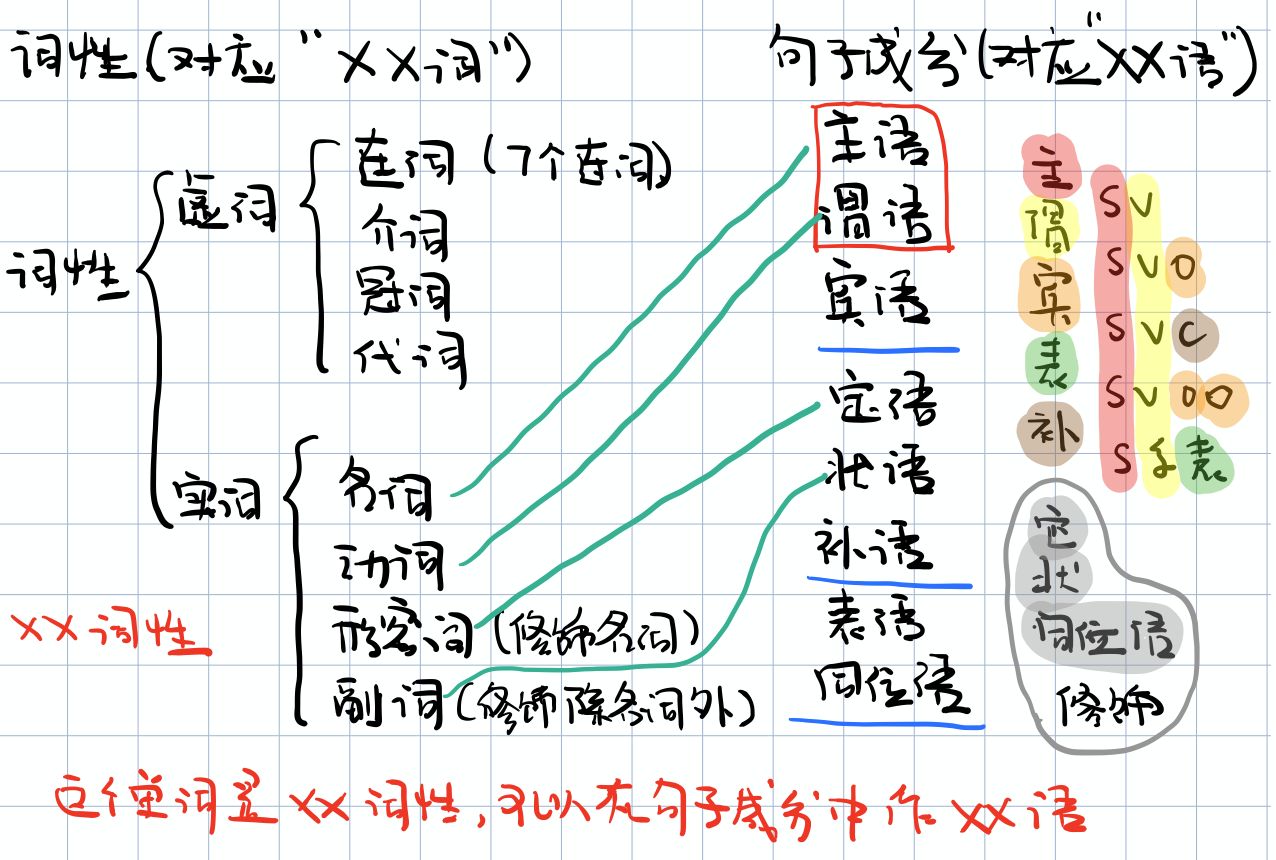 词性(对应“XX词”)
句子成分(对应“XX语”)
词性
虚词
连词(7个连词)
介词
冠词
代词
实词
名词
动词
形容词(修饰名词)
副词(修饰除名词外)
XX词性
主语
谓语
宾语
定语
状语
补语
表语
同位语
主
谓
宾
表
补
S V
S V O
S V C
S V O O
S 系 表
定
状
同位语
修饰
这个单词是XX词性,可以在句子成分中作XX语